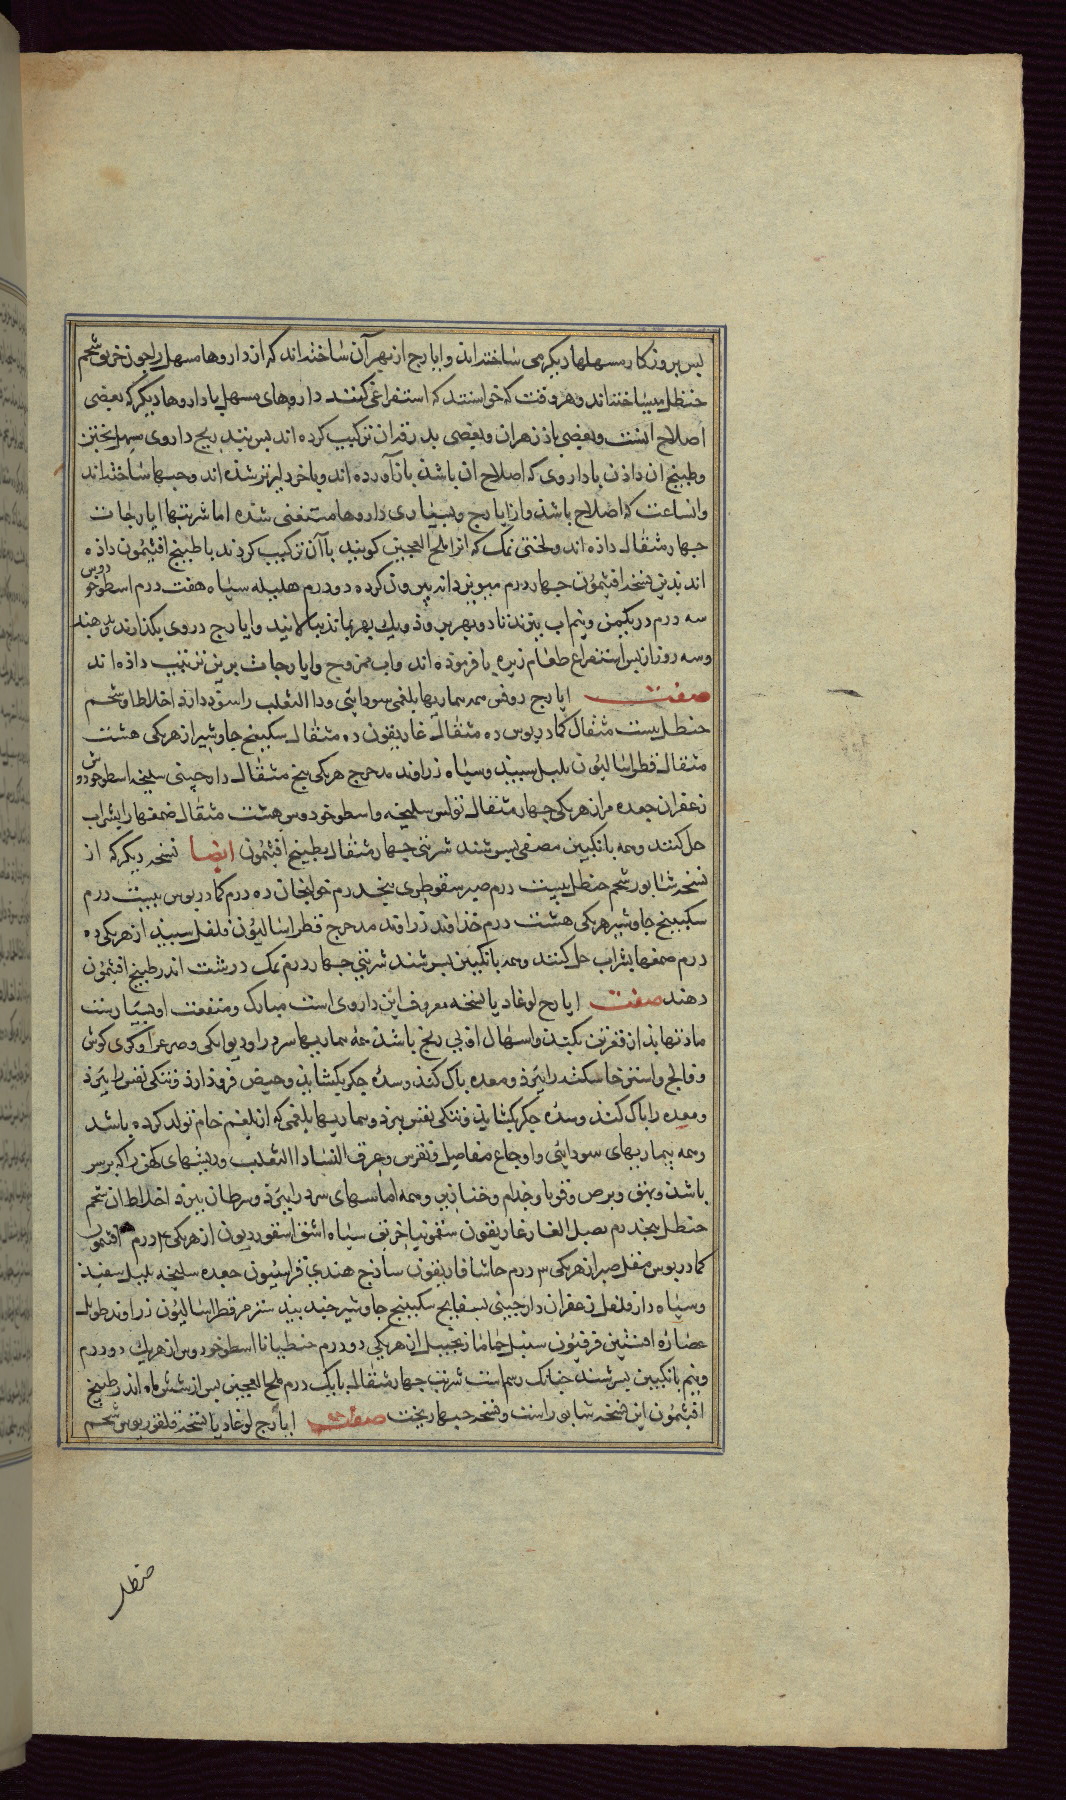 پس بروزکار مسهلها دیکر می ساخته اند و ایارج از بهر آن ساخته اند که از داروها مسهل را چون خربق و شحم
حنظل میساخته اند و هر وقت که خواستند که استفراغی کنند داروهای مسهل با داروها دیکر که بعضی
اصلاح انست و بعضی باذزهران و بعضی بدرقه ان ترکیب کرده اند پس بتدریج داروی مسهل پختن
و طبیخ ان داذن با داروی که اصلاح ان باشذ بازآورده اند و باخر دلیرتر شذه اند و حبها ساخته اند
و انساعت که اصلاح باشذ و از ایارج و بسیاری داروها مستغنی شده اما شربتها ایارجات
چهار مثقال داذه اند و لختی نمک که انرا ملح العجین کویند با آن ترکیب کردند با طبیخ افتیمون داذه
اند بدین نسخه افتیمون چهار درم میویز دانه بیرون کرده دو درم هلیله سیاه هفت درم اسطوخودوس
سه درم در یکمن و نیم اب بپزند تا دو بهر برود و یک بهر بماند بپالایند و ایارج در وی بکذارند و بدهند
و سه روز از پس استفراغ طعام زیره با فرموذه اند و اب ممزوج و ایارجات برین ترتیب داذه اند
صفت ایارج روفس همه بیماریها بلغمی سودایی و داالثعلب را سود دارد اخلاط او شحم
حنظل بیست مثقال کمادریوس ده مثقال غاریقون ده مثقال سکبینج جاوشیر از هریکی هشت
مثقال فطراسالیون پلپل سپید و سیاه زراوند مدحرج هریکی پنج مثقال دارچینی سلیخه اسطوخودوس
زعفران جعده مر از هریکی چهار مثقال نولس سلیخه و اسطوخودوس هشت مثقال صمغها را بشراب
حل کنند و همه بانکبین مصفی بسرشند شربتی چهار مثقال بطبیخ افتیمون ایضا نسخه دیکر که از
نسخه شابور شحم حنظل بیست درم صبر سقوطری پنجدرم خولنجان ده درم کمادریوس بیست درم
سکبینج جاوشیر هریکی هشت درم زراوند مدحرج فطراسالیون فلفل سپید از هریکی ده
درم صمغها بشراب حل کنند و همه بانکبین بسرشند شربتی چهار درم نمک درشت اندر طبیخ افتیمون
دهند صفت ایارج لوغادیا نسخه معروف این داروی است مبارک و منفعت او بسیارست
مادتها بد از قعر تن بکشد و اسهال او بی رنج باشد همه بیماریها سرد را و دیوانکی و صرع را و کری کوش
و فالج و استرخا سکته را ببرذ و معده پاک کند و سده جکر بکشاید و حیض فروذ ارد و تنکی نفس را ببرذ
و معده را پاک کند و سده جکر بکشاید و تنکی نفس ببرد و بیماریها بلغمی که از بلغم خام تولد کرده باشد
و همه بیماریهای سودایی و اوجاع مفاصل و نقرس و عرق النسا و داالثعلب و ریشهای کهن را که بر سر
باشذ و بهق و برص و قوبا و جذام و خنازیر و همه اماسهای سرد را ببرذ و سرطان ببرد اخلاط ان شحم
حنظل پنجدرم بصل الفار غاریقون سقمونیا خربق سیاه اشق اسقوردیون از هریکی ۴ درم افتیمون
کمادریوس مقل صبر از هریکی ۳ درم حاشا فاریقون ساذج هندی فراسیون جعده سلیخه پلپل سفید
و سیاه دار فلفل زعفران دارچینی بسفایج سکبینج جاوشیر جندبیدستر مر فطراسالیون زراوند طویل
عصاره افسنتین فرفیون سنبل حماما زنجبیل از هریکی دو درم جنطیانا اسطوخودوس از هریک دو درم
و نیم بانکبین بسرشند چنانک رسم است شربت چهار مثقال با یک درم ملح العجین پس از شش ماه اندر طبیخ
افتیمون این نسخه شابور راست و نسخه حبها ریخت صفت ایارج لوغادیا نسخه فلفوریوس شحم
حنظل